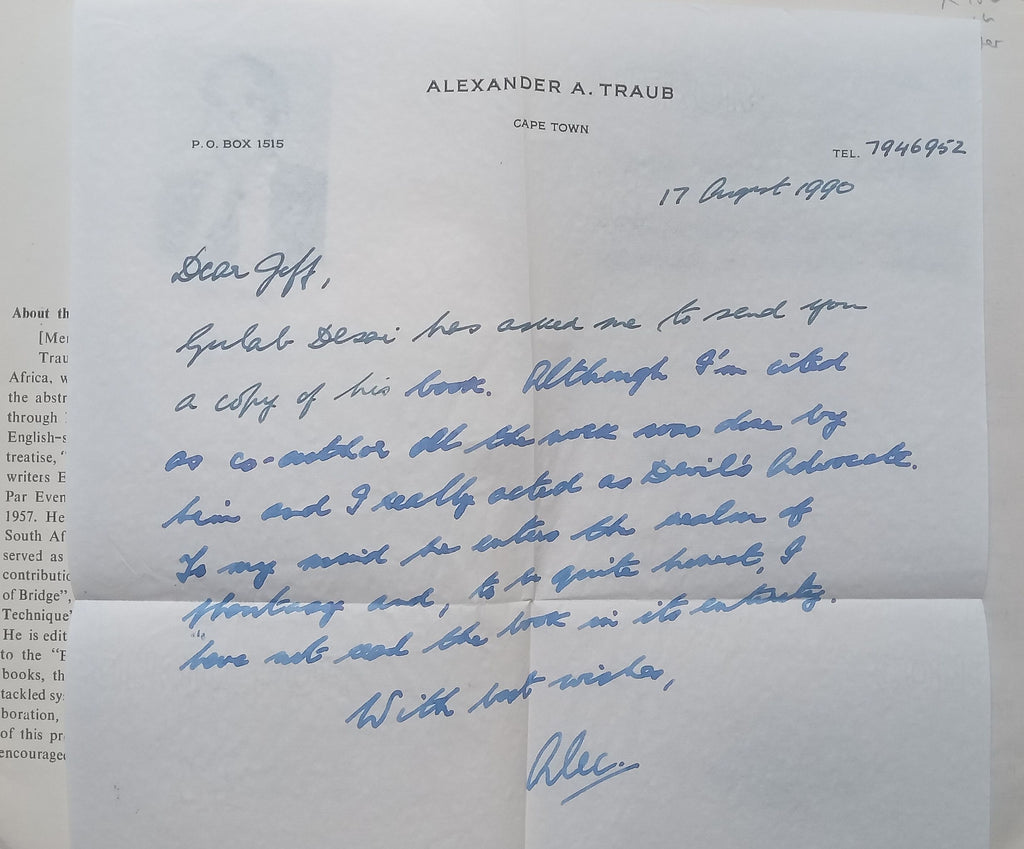 ALEXANDER A. TRAUB
CAPE TOWN
P.O. BOX 1515
TEL. 7946952
17 August 1990
Dear Jeff,
Gulab Desai has asked me to send you
a copy of his book. Although I'm cited
as co-author all the work was done by
him and I really acted as Devil's Advocate.
To my mind he enters the realm of
phantasy and, to be quite honest, I
have not read the book in its entirety.
With best wishes,
Alec.
About th
[Me
Trau
Africa, w
the abstr
through
English-s
treatise, "
writers E
Par Even
1957. He
South Af
served as
contributio
of Bridge",
Technique"
He is edit
to the "E
books, th
tackled sy
boration,
of this pr
encourage